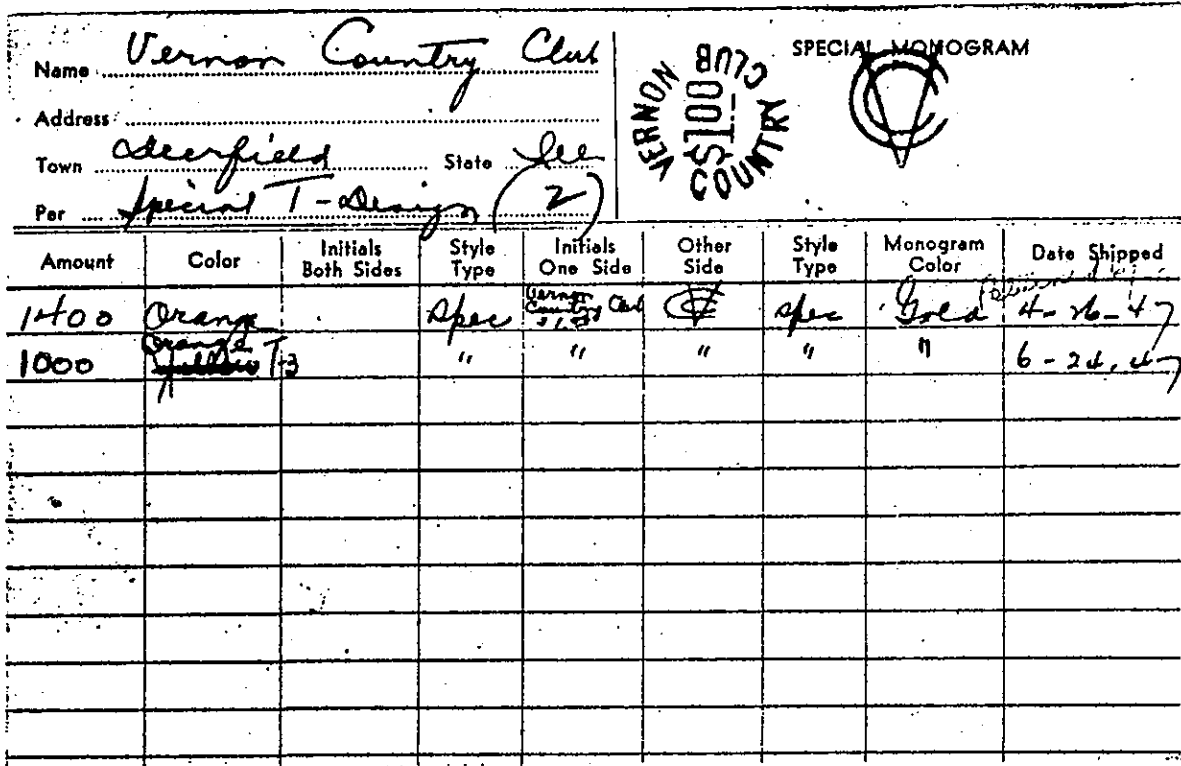 Name Vernon Country Club
Address
Town Deerfield State Ill
Per Special T-Design (2)
VERNON COUNTRY CLUB
$1.00
SPECIAL MONOGRAM
VCC
Amount Color Initials Both Sides Style Type Initials One Side Other Side Style Type Monogram Color Date Shipped
1400 Orange Spec Vernon Country Club $1.00 VCC Spec Gold 4-26-47
1000 Orange T-3 " " " " " 6-24-47